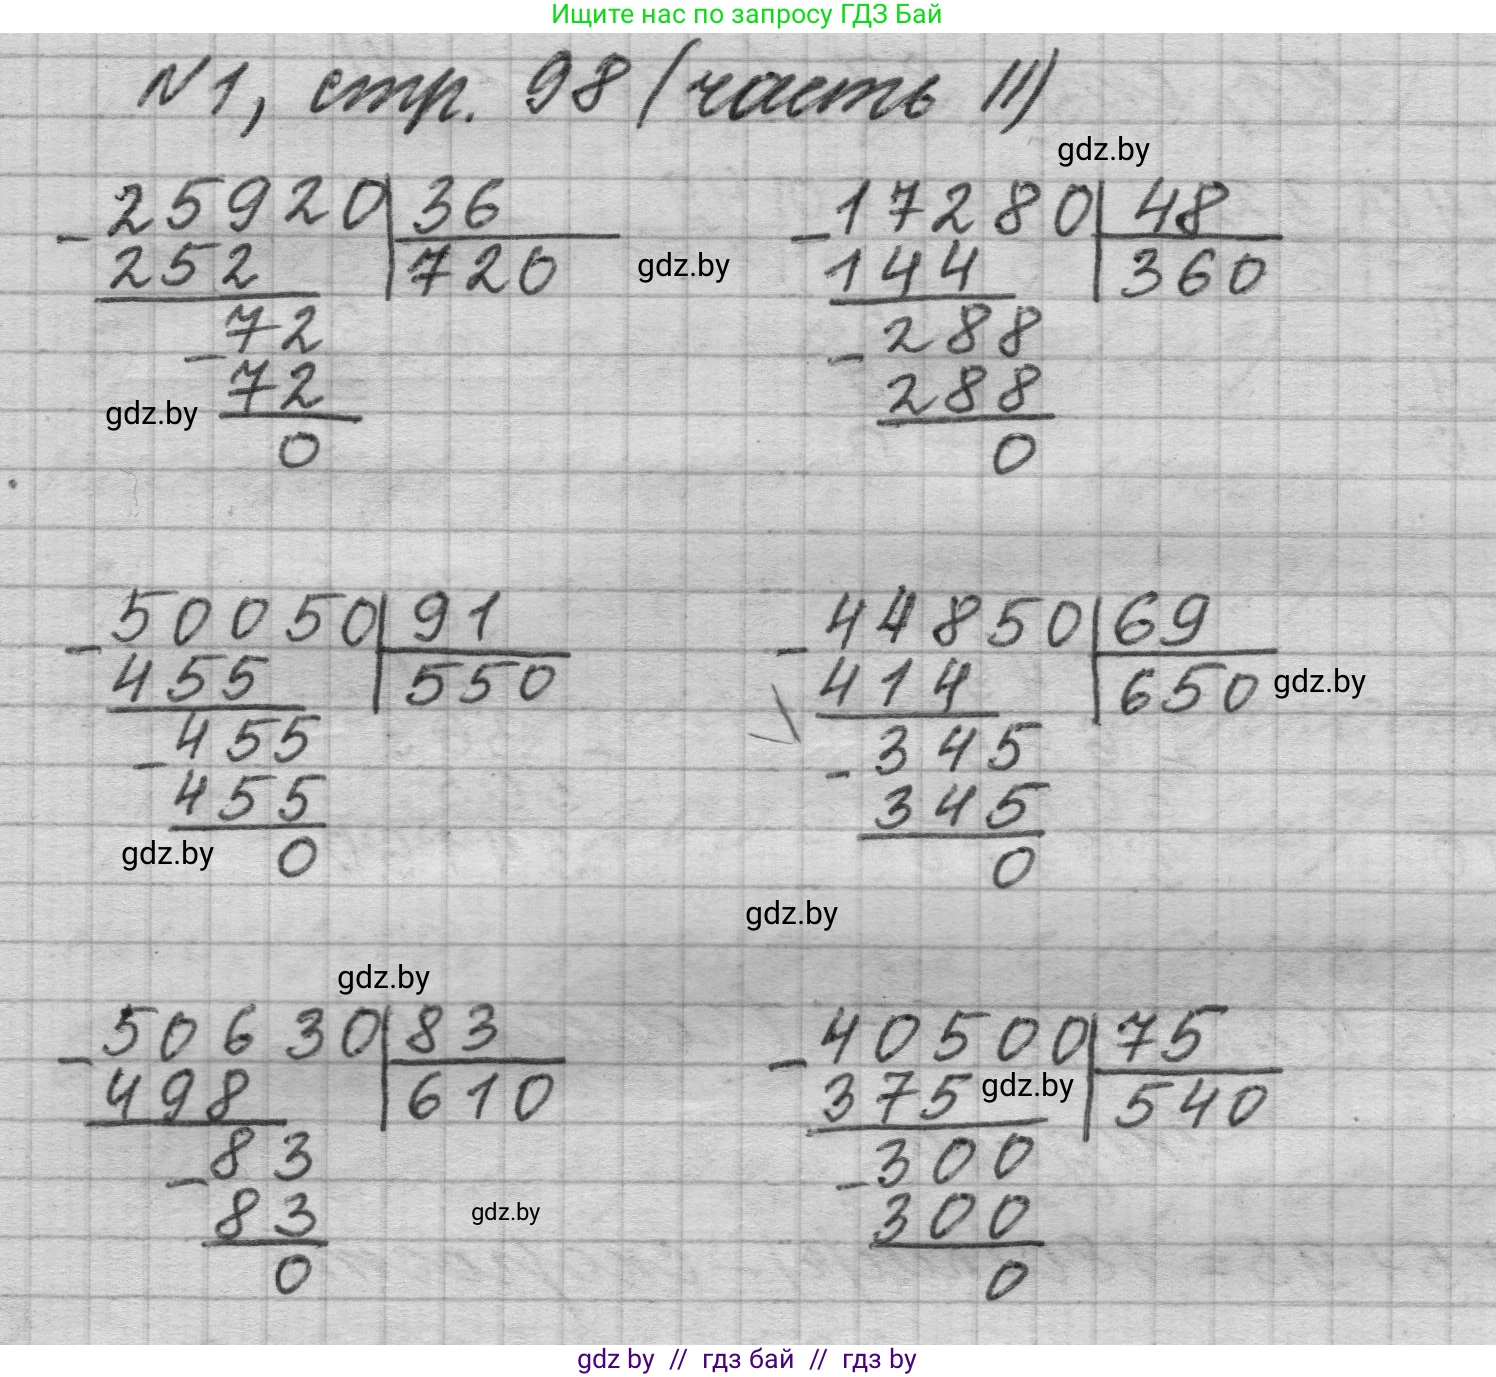 Ищите нас по запросу ГДЗ Бай
N1, стр. 98 (часть II)
gdz.by
25920 36
- 252 720
72
- 72
0
gdz.by
gdz.by
17280 48
- 144 360
288
- 288
0
50050 91
- 455 550
455
- 455
0
gdz.by
44850 69
- 414 650
gdz.by
345
- 345
0
gdz.by
gdz.by
50630 83
- 498 610
83
- 83
0
gdz.by
40500 75
- 375 540
gdz.by
300
- 300
0
gdz by // гдз бай // гдз by